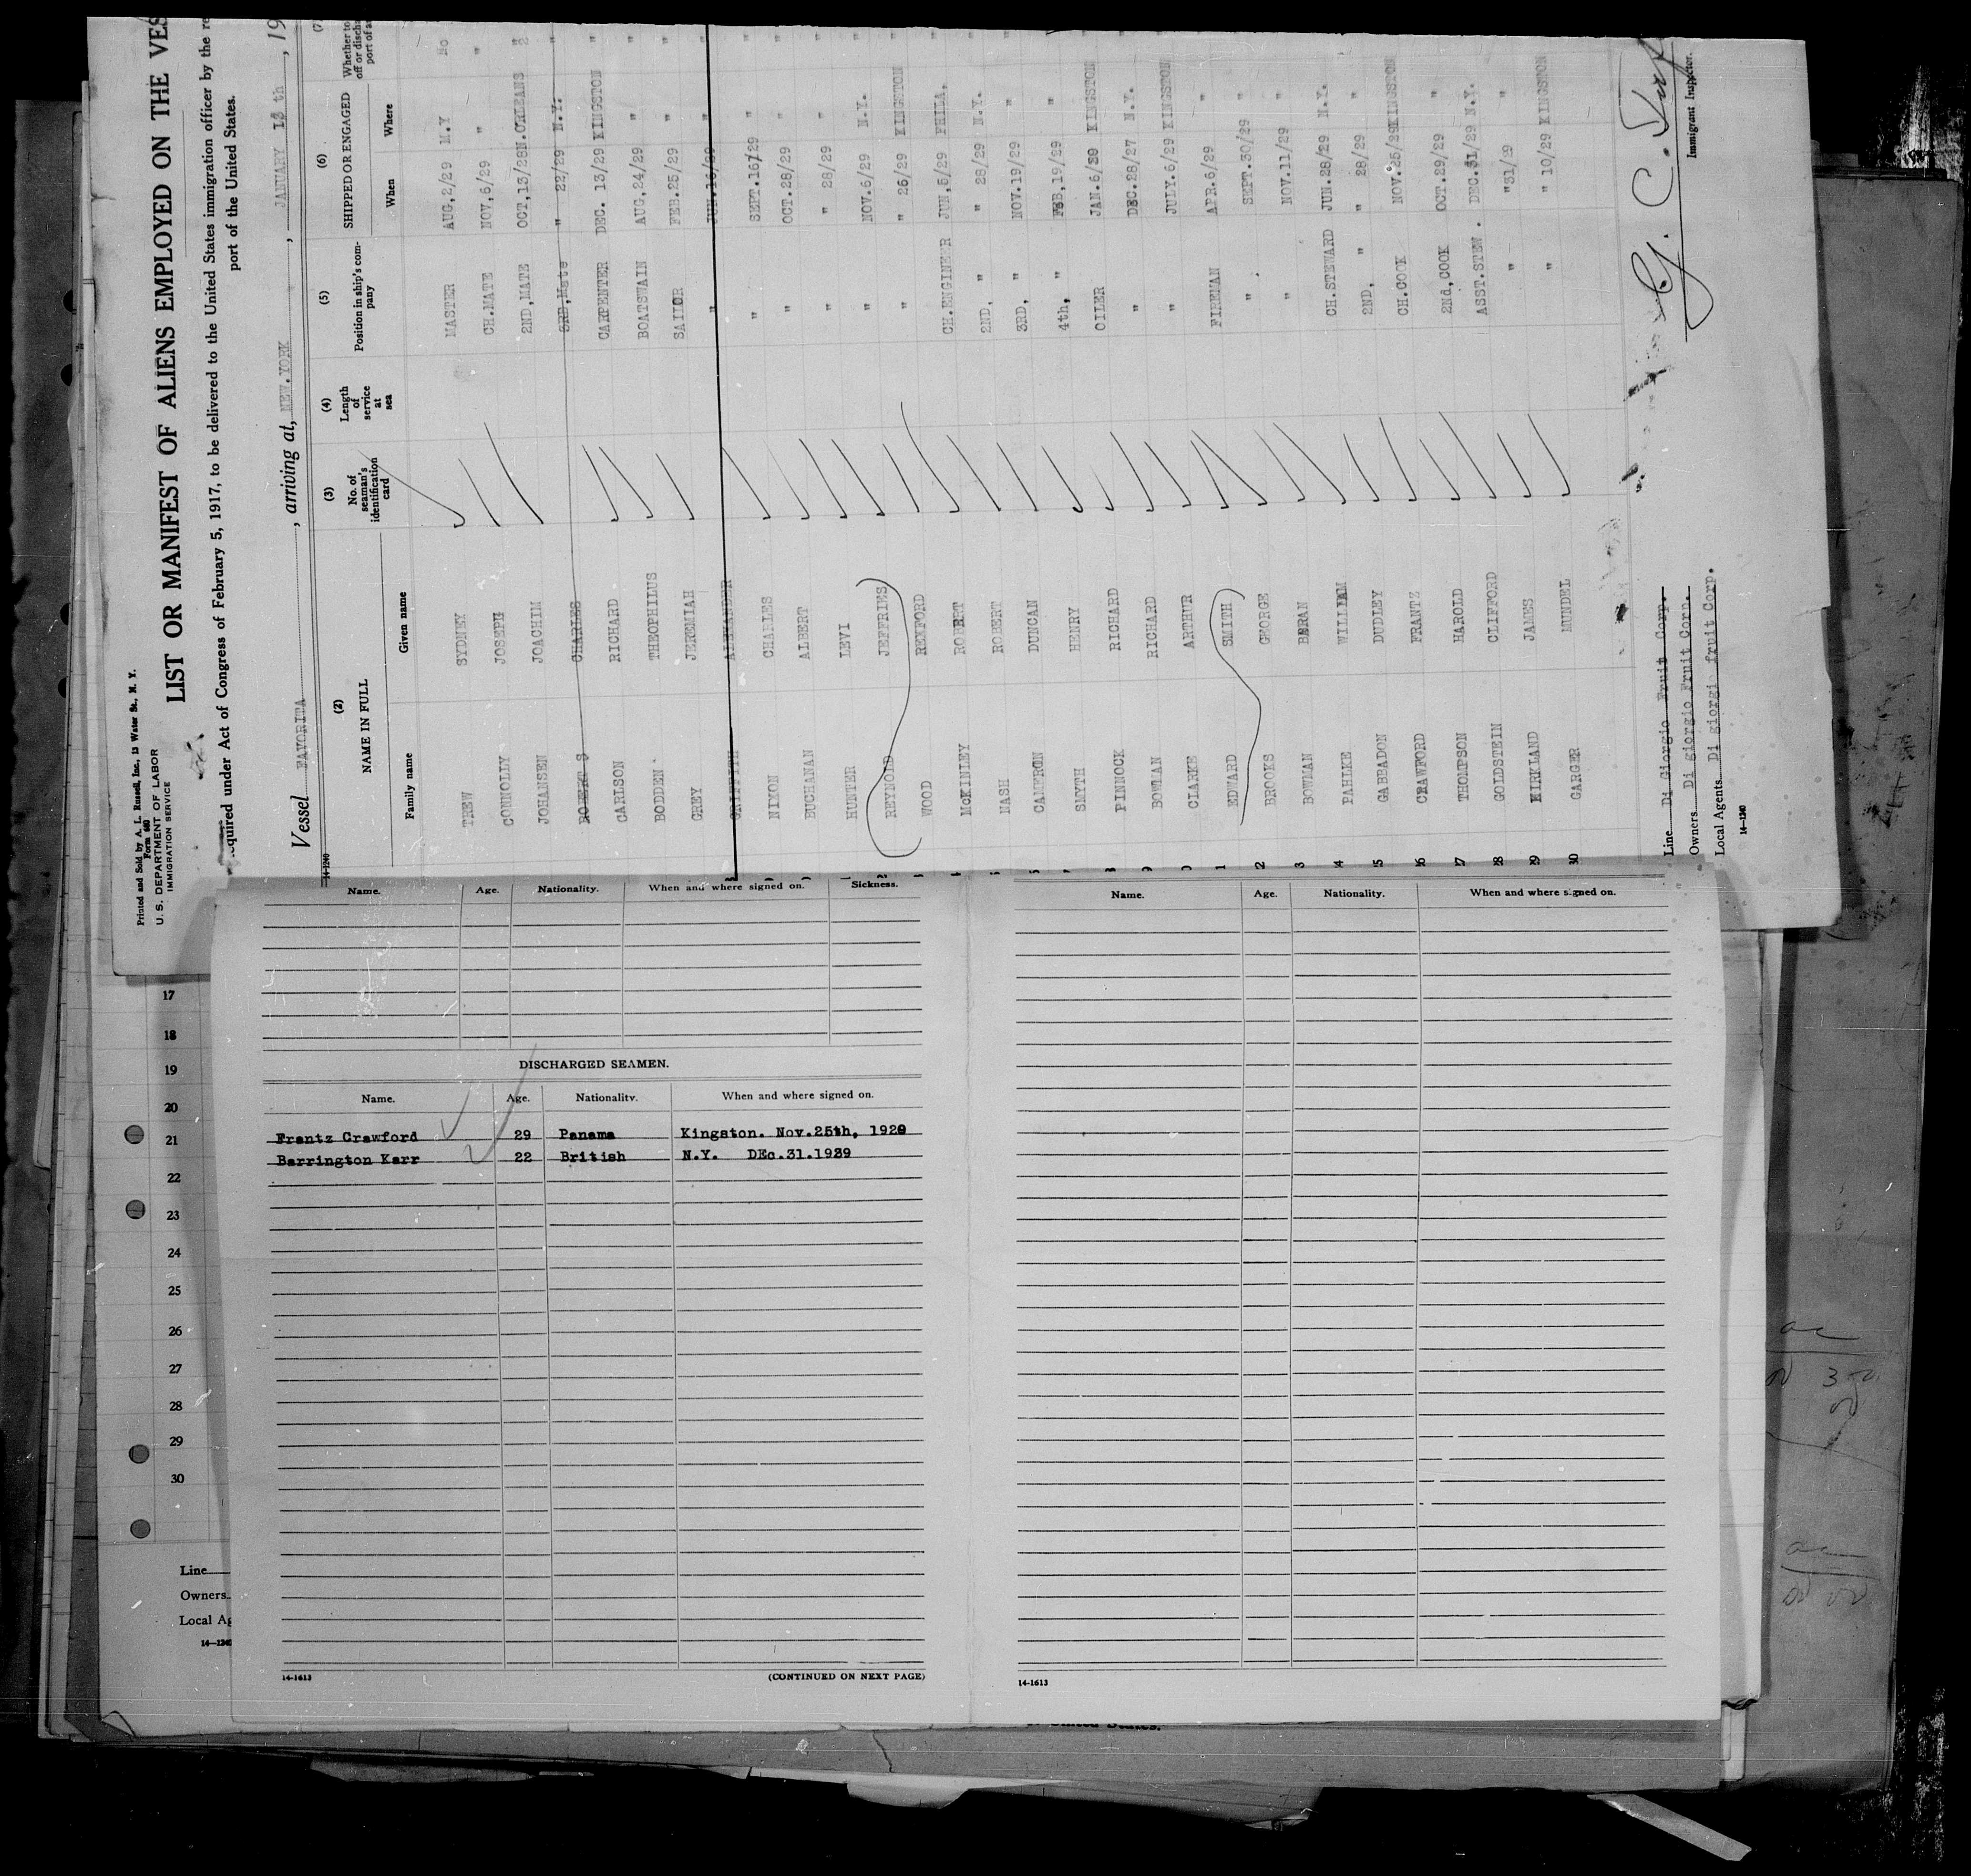 Printed and Sold by A. L. Russell, Inc., 13 Water St., N. Y.
Form 680
U. S. DEPARTMENT OF LABOR
IMMIGRATION SERVICE
LIST OR MANIFEST OF ALIENS EMPLOYED ON THE VES
equired under Act of Congress of February 5, 1917, to be delivered to the United States immigration officer by the re
port of the United States.
Vessel FAVORITA, arriving at, NEW.YORK, JANUARY 13 th, 19
14-1240
(2) (3) (4) (5) (6) (7)
NAME IN FULL No. of seaman's identification card Length of service at sea Position in ship's company SHIPPED OR ENGAGED Whether to
off or discha
port of a
Family name Given name When Where
TREW SYDNEY MASTER AUG,2/29 M.Y No
CONNOLLY JOSEPH CH.MATE NOV,6/29 " "
JOHANSEN JOACHIM 2ND,MATE OCT,13/28 N.ORLEANS
ROBERTS CHARLES 3RD,Mate " 22/29 N.Y. "
CARLSON RICHARD CARPENTER DEC. 13/29 KINGSTON "
BODDEN THEOPHILUS BOATSWAIN AUG,24/29 " "
GREY JEREMIAH SAILOR FEB.25/29 " "
GRIFFITH ALEXANDER " JUN.16/29 " "
NIXON CHARLES " SEPT.16/29 " "
BUCHANAN ALBERT " OCT.28/29 " "
HUNTER LEVI " " 28/29 " "
REYNOLD JEFFRIES " NOV.6/29 N.Y. "
WOOD REXFORD " " 26/29 KINGSTON "
McKINLEY ROBERT CH.ENGINEER JUN,5/29 PHILA. "
MASH ROBERT 2ND, " " 28/29 N.Y. "
CAMERON DUNCAN 3RD, " NOV.19/29 " "
SMYTH HENRY 4th, " FEB,19/29 "
PINNOCK RICHARD OILER JAN.6/29 KINGSTON "
BOWMAN RICHARD " DEC.28/27 N.Y. "
CLARKE ARTHUR " JULY.6/29 KINGSTON "
EDWARD SMITH FIREMAN APR.6/29 " "
BROOKS GEORGE " SEPT.30/29 " "
BOWMAN BERAN " NOV.11/29 " "
PAHLKE WILLIAM CH.STEWARD JUN.28/29 N.Y. "
GABBADON DUDLEY 2ND, " " 28/29 " "
CRAWFORD FRANTZ CH.COOK NOV.25/29 KINGSTON "
THOMPSON HAROLD 2Nd,COOK OCT.29/29 " "
GOLDSTEIN CLIFFORD ASST.STEW. DEC.31/29 N.Y. "
KIRKLAND JAMES " "31/29 " "
30 GARGER MUNDEL " " 10/29 KINGSTON "
Line Di Giorgio Fruit Corp.
Owners Di giorgio Fruit Corn.
Local Agents Di giorgio fruit Corp.
14-1240
Immigrant Inspector.
Name. Age. Nationality. When and where signed on. Sickness.
DISCHARGED SEAMEN.
Name. Age. Nationality. When and where signed on.
Frantz Crawford 29 Panama Kingston. Nov.25th, 1929
Barrington Karr 22 British N.Y. DEc.31.1929
14-1613
(CONTINUED ON NEXT PAGE)
Name. Age. Nationality. When and where signed on.
14-1613
17
18
19
20
21
22
23
24
25
26
27
28
29
30
Line
Owners
Local Ag
14-1240